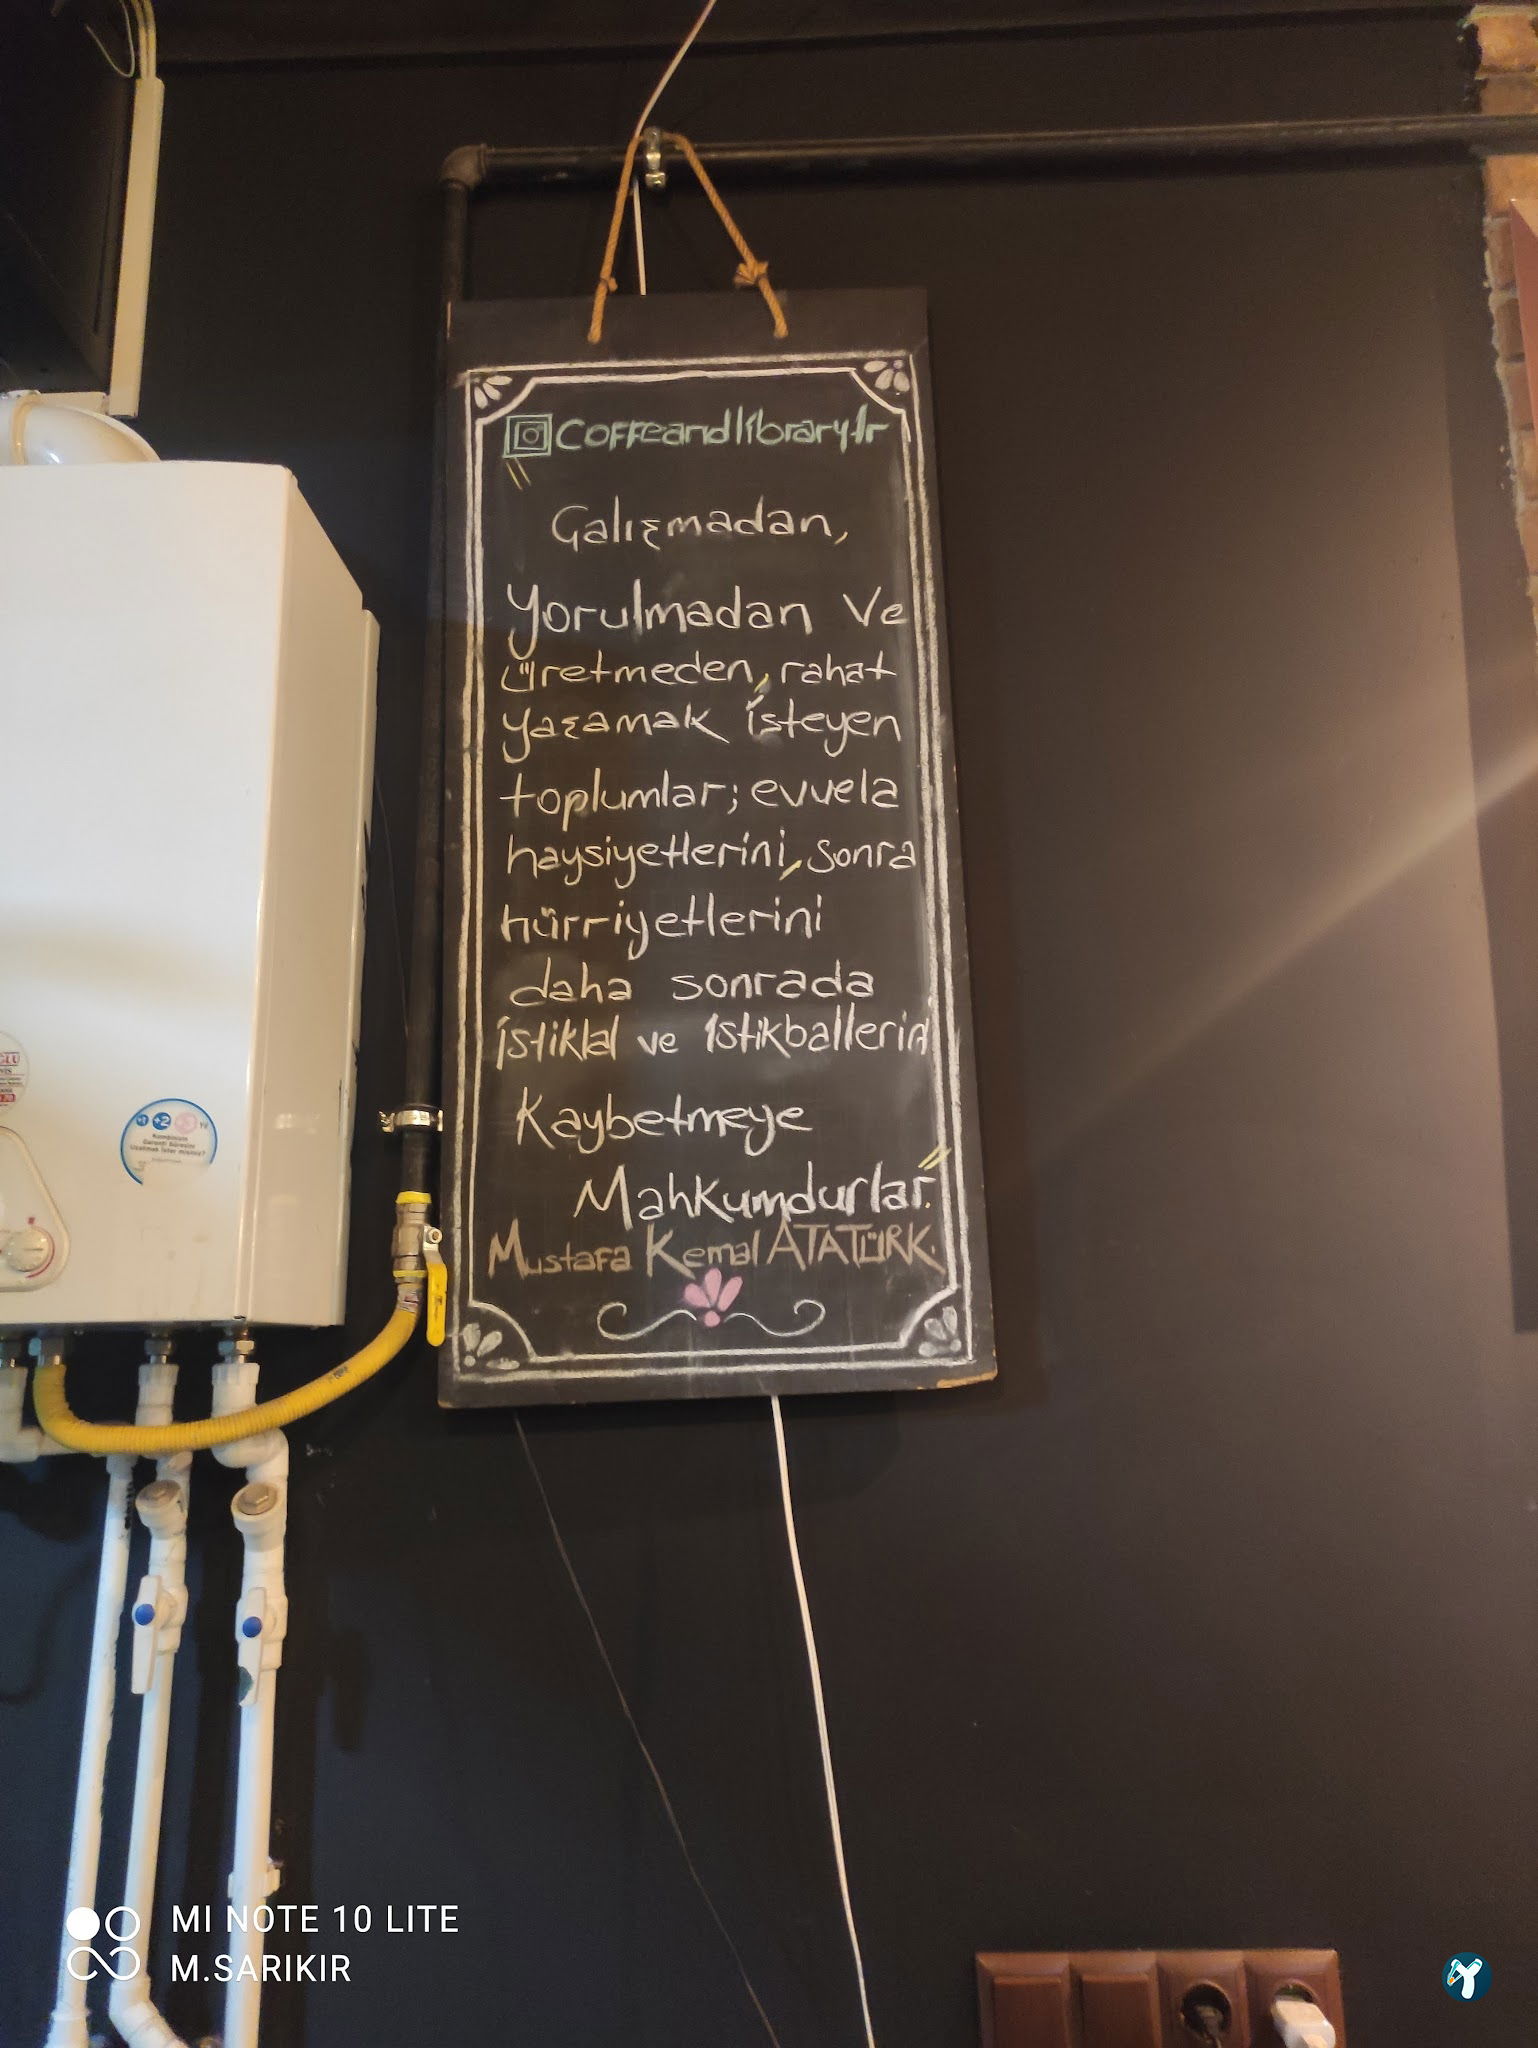 coffeeandlibrarytr
" Çalışmadan,
yorulmadan ve
üretmeden, rahat
yaşamak isteyen
toplumlar; evvela
haysiyetlerini, sonra
hürriyetlerini
daha sonrada
istiklal ve istikballerini
Kaybetmeye
Mahkumdurlar."
Mustafa Kemal ATATÜRK.
+1 +2 +3 Yıl
Kombinizin
Garanti Süresini
Uzatmak İster misiniz?
MI NOTE 10 LITE
M.SARIKIR